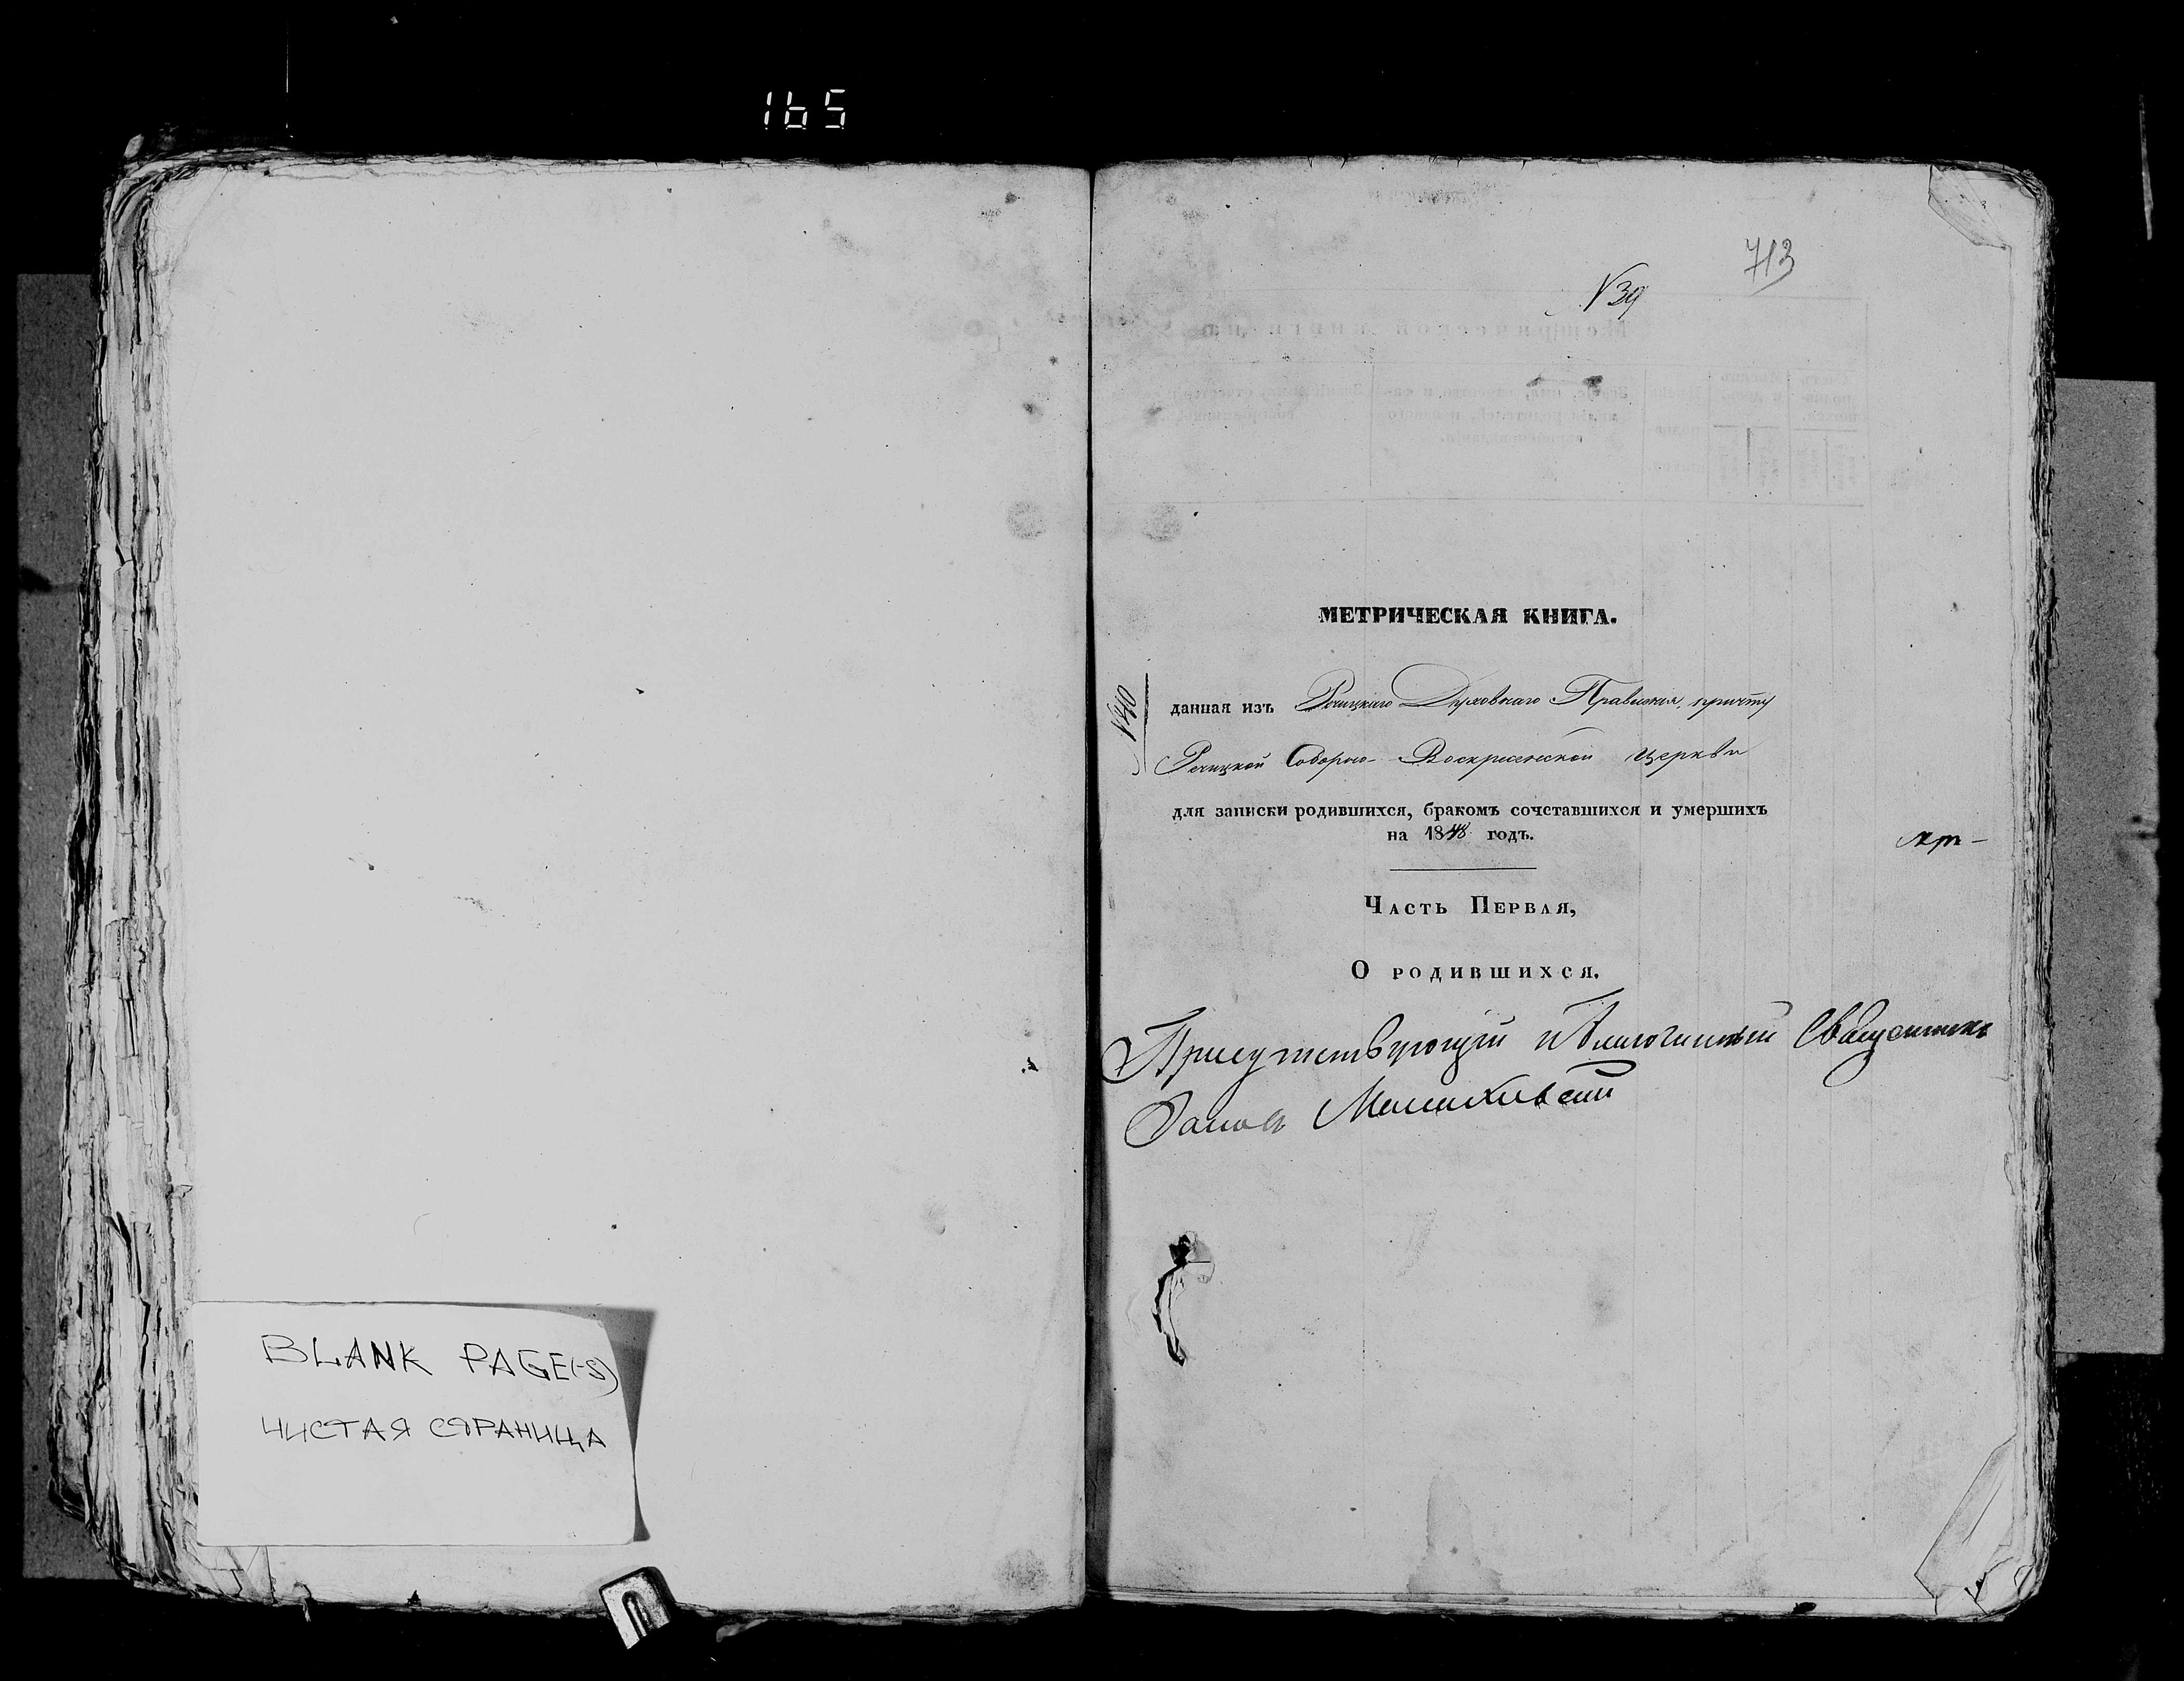 165
BLANK PAGE(-S)
ЧИСТАЯ СТРАНИЦА
713
№ 39
МЕТРИЧЕСКАЯ КНИГА.
№ 40
данная изъ Речицкаго Духовнаго Правленія, причту
Речицкой Соборно-Воскресенской церкви
для записки родившихся, бракомъ сочетавшихся и умершихъ
на 1848 годъ.
Часть Первая,
О родившихся.
Присутствующий и Благочинный Священникъ